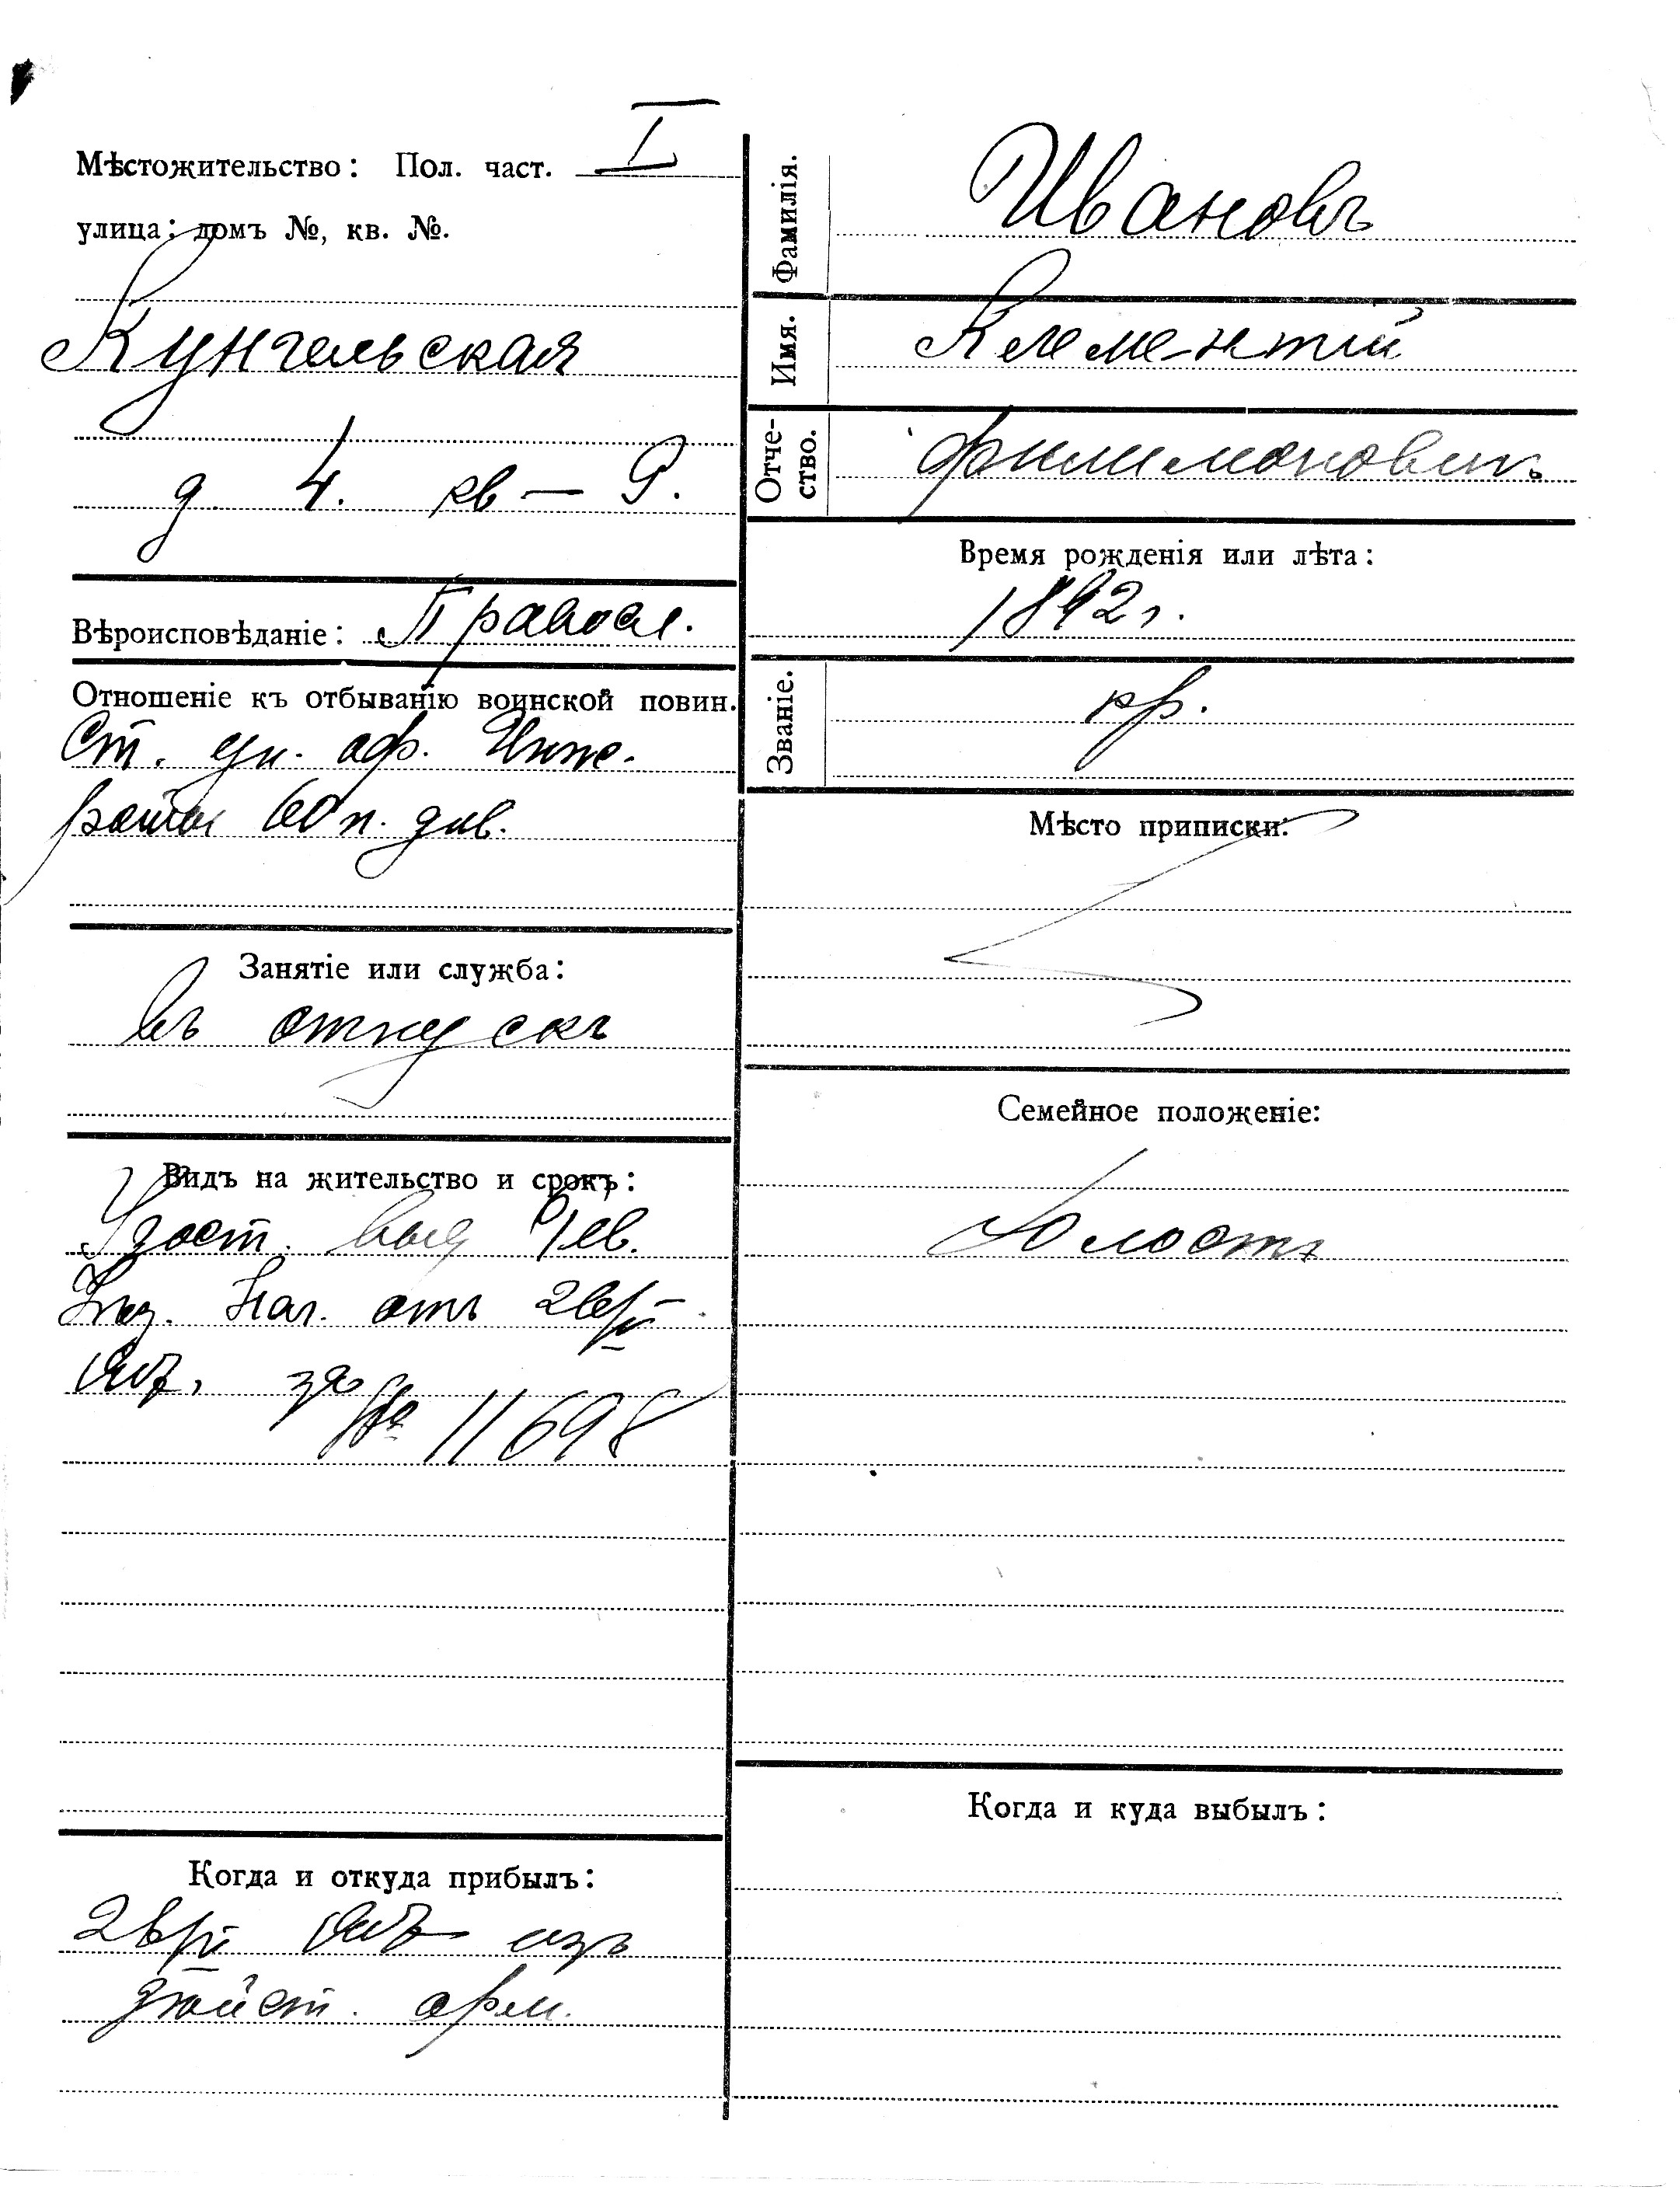 Мѣстожительство: Пол. част. I
улица: домъ №, кв. №.
Кунгельская
д 4. кв — 9.
Вѣроисповѣданіе: Правосл.
Отношеніе къ отбыванію воинской повин.
Ст. ун. оф. Инж.
роты 60 п. див.
Занятіе или служба:
въ отпускъ
Видъ на жительство и срокъ:
Удост. выд
Нач. отъ
за № 11698
Когда и откуда прибылъ:
изъ
дѣйст. арм.
Фамилія.
Ивановъ
Имя.
Клементій
Отче-
ство.
Филимоновичъ
Время рожденія или лѣта:
1892 г.
Званіе.
кр.
Мѣсто приписки:
Семейное положеніе:
Холостъ
Когда и куда выбылъ: